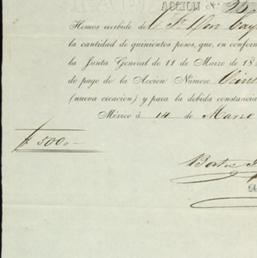 ACCION N.º 25
Hemos recibido de
la cantidad de quinientos pesos, que, en confor
la Junta General de 11 de Marzo de 18
de pago de la Accion Número
(nueva creacion) y para la debida constancia
México á 14 de Marzo
$500